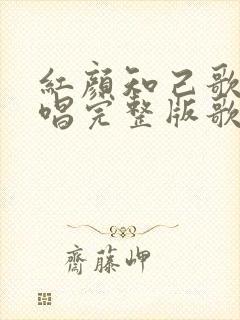 紅顏知己歌
唱完整版歌
齋藤岬